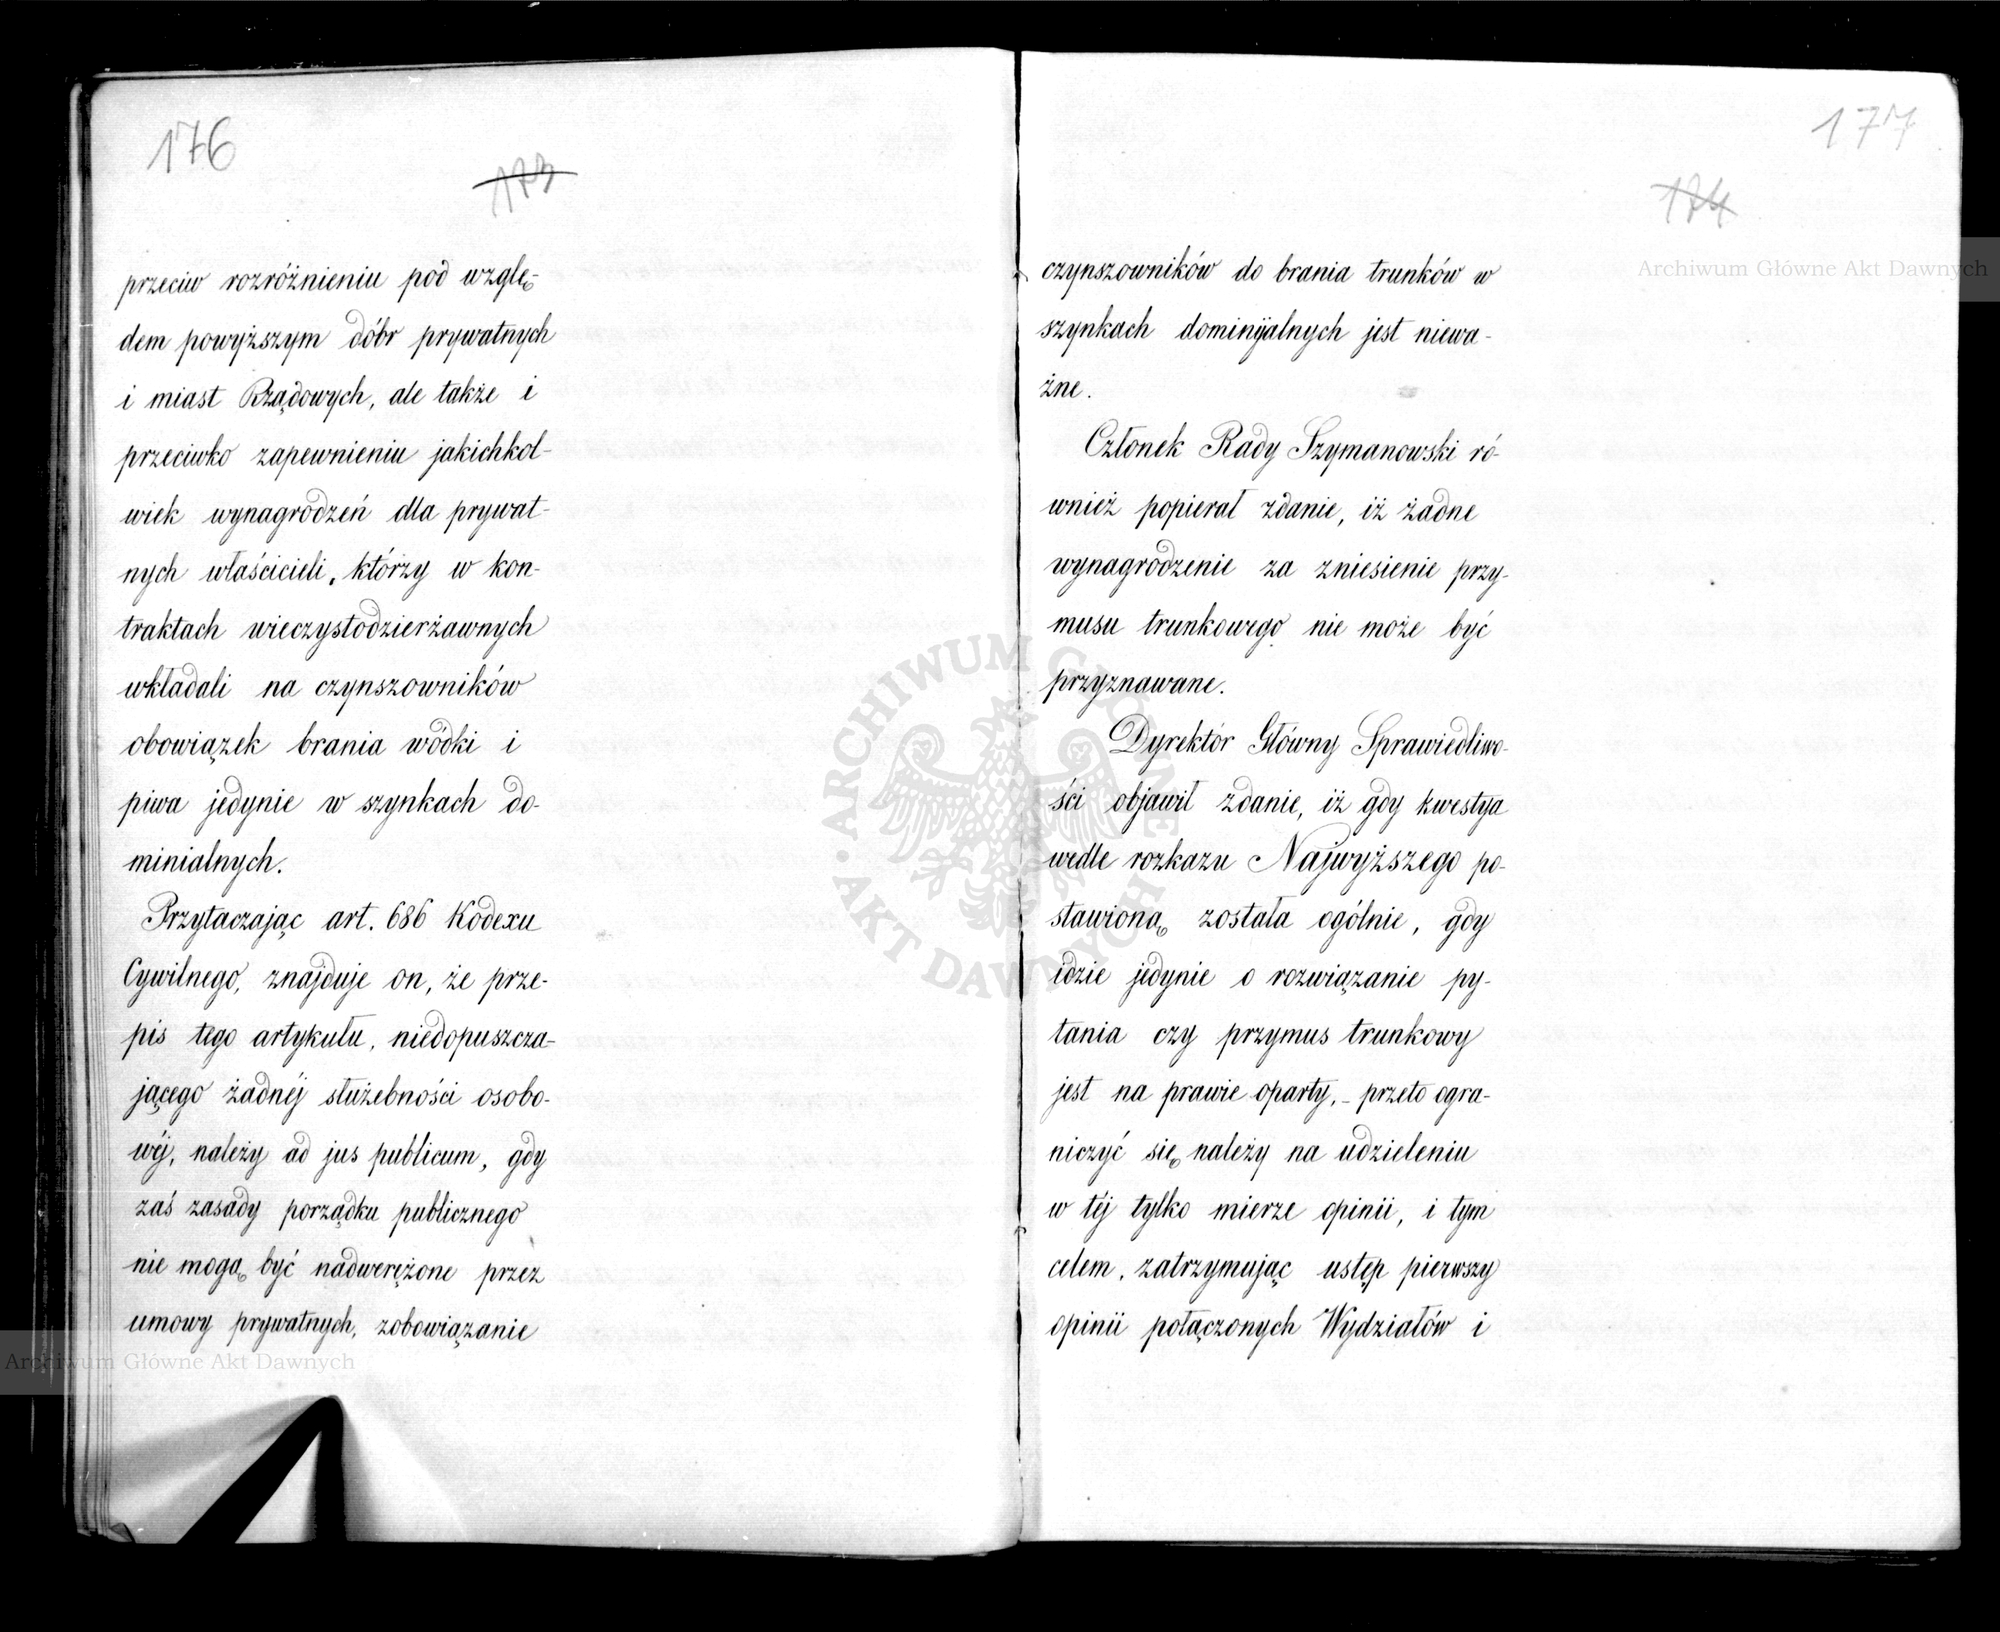 176
173
przeciw rozróżnieniu pod wzglę-
dem powyższym dóbr prywatnych
i miast Rządowych, ale także i
przeciwko zapewnieniu jakichkol-
wiek wynagrodzeń dla prywat-
nych właścicieli, którzy w kon-
traktach wieczystodzierżawnych
wkładali na czynszowników
obowiązek brania wódki i
piwa jedynie w szynkach do-
minialnych.
Przytaczając art. 686 Kodexu
Cywilnego, znajduje on, że prze-
pis tego artykułu, niedopuszcza-
jącego żadnéj służebności osobo-
wéj, należy ad jus publicum, gdy
zaś zasady porządku publicznego
nie mogą być nadwerężone przez
umowy prywatnych, zobowiązanie
Archiwum Główne Akt Dawnych
177
174
Archiwum Główne Akt Dawnych
czynszowników do brania trunków w
szynkach dominijalnych jest niewa-
żne.
Członek Rady Szymanowski ró-
wnież popierał zdanie, iż żadne
wynagrodzenie za zniesienie przy-
musu trunkowego nie może być
przyznawane.
Dyrektór Główny Sprawiedliwo-
ści objawił zdanie, iż gdy kwestya
wedle rozkazu Najwyższego po-
stawioną została ogólnie, gdy
idzie jedynie o rozwiązanie py-
tania czy przymus trunkowy
jest na prawie oparty, – przeto ogra-
niczyć się należy na udzieleniu
w téj tylko mierze opinii, i tym
celem, zatrzymując ustęp pierwszy
opinii połączonych Wydziałów i
ARCHIWUM GŁÓWNE · AKT DAWNYCH ·